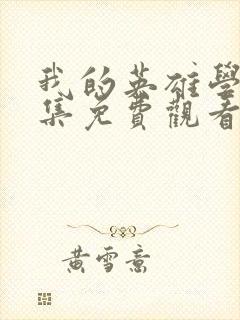 我的英雄學
集免費觀看
黃雪意